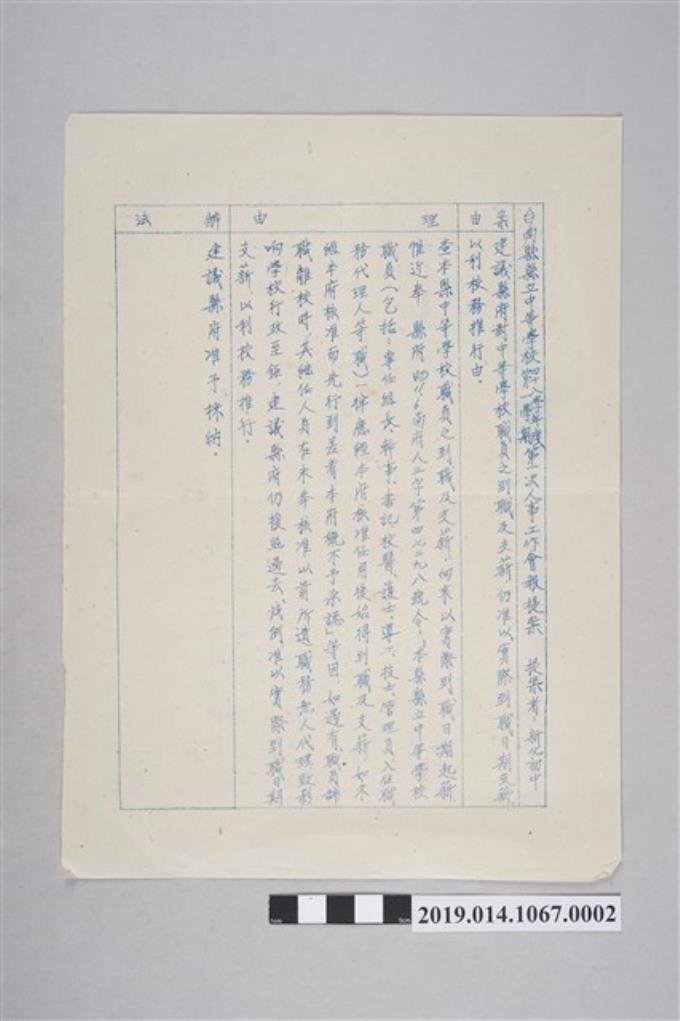 台南縣縣立中等學校四十八學年度第一學期第一次人事工作會報提案　提案者：新化初中
案由
建議縣府對中等學校職員之到職及支薪仍准以實際到職日期支薪，
以利校務推行由。
理由
查本縣中等學校職員之到職及支薪，向來以實際到職日期起薪，
惟近奉　縣府48.11.6南府人二字第四七二九八號令：「本縣縣立中等學校
職員（包括：專任組長、幹事、書記、校醫、護士、導工、技士、管理員、入伍職
務代理人等職）一律應經本府核准任用後始得到職及支薪，如未
經本府核准而先行到差者本府概不予承認」等因，如遇有職員辭
職離校時，其繼任人員在未奉核准以前所遺職務無人代理致影
响學校行政至鉅，建議縣府仍按照過去成例准以實際到職日期
支薪，以利校務推行。
辦法
建議縣府准予採納。
2019.014.1067.0002